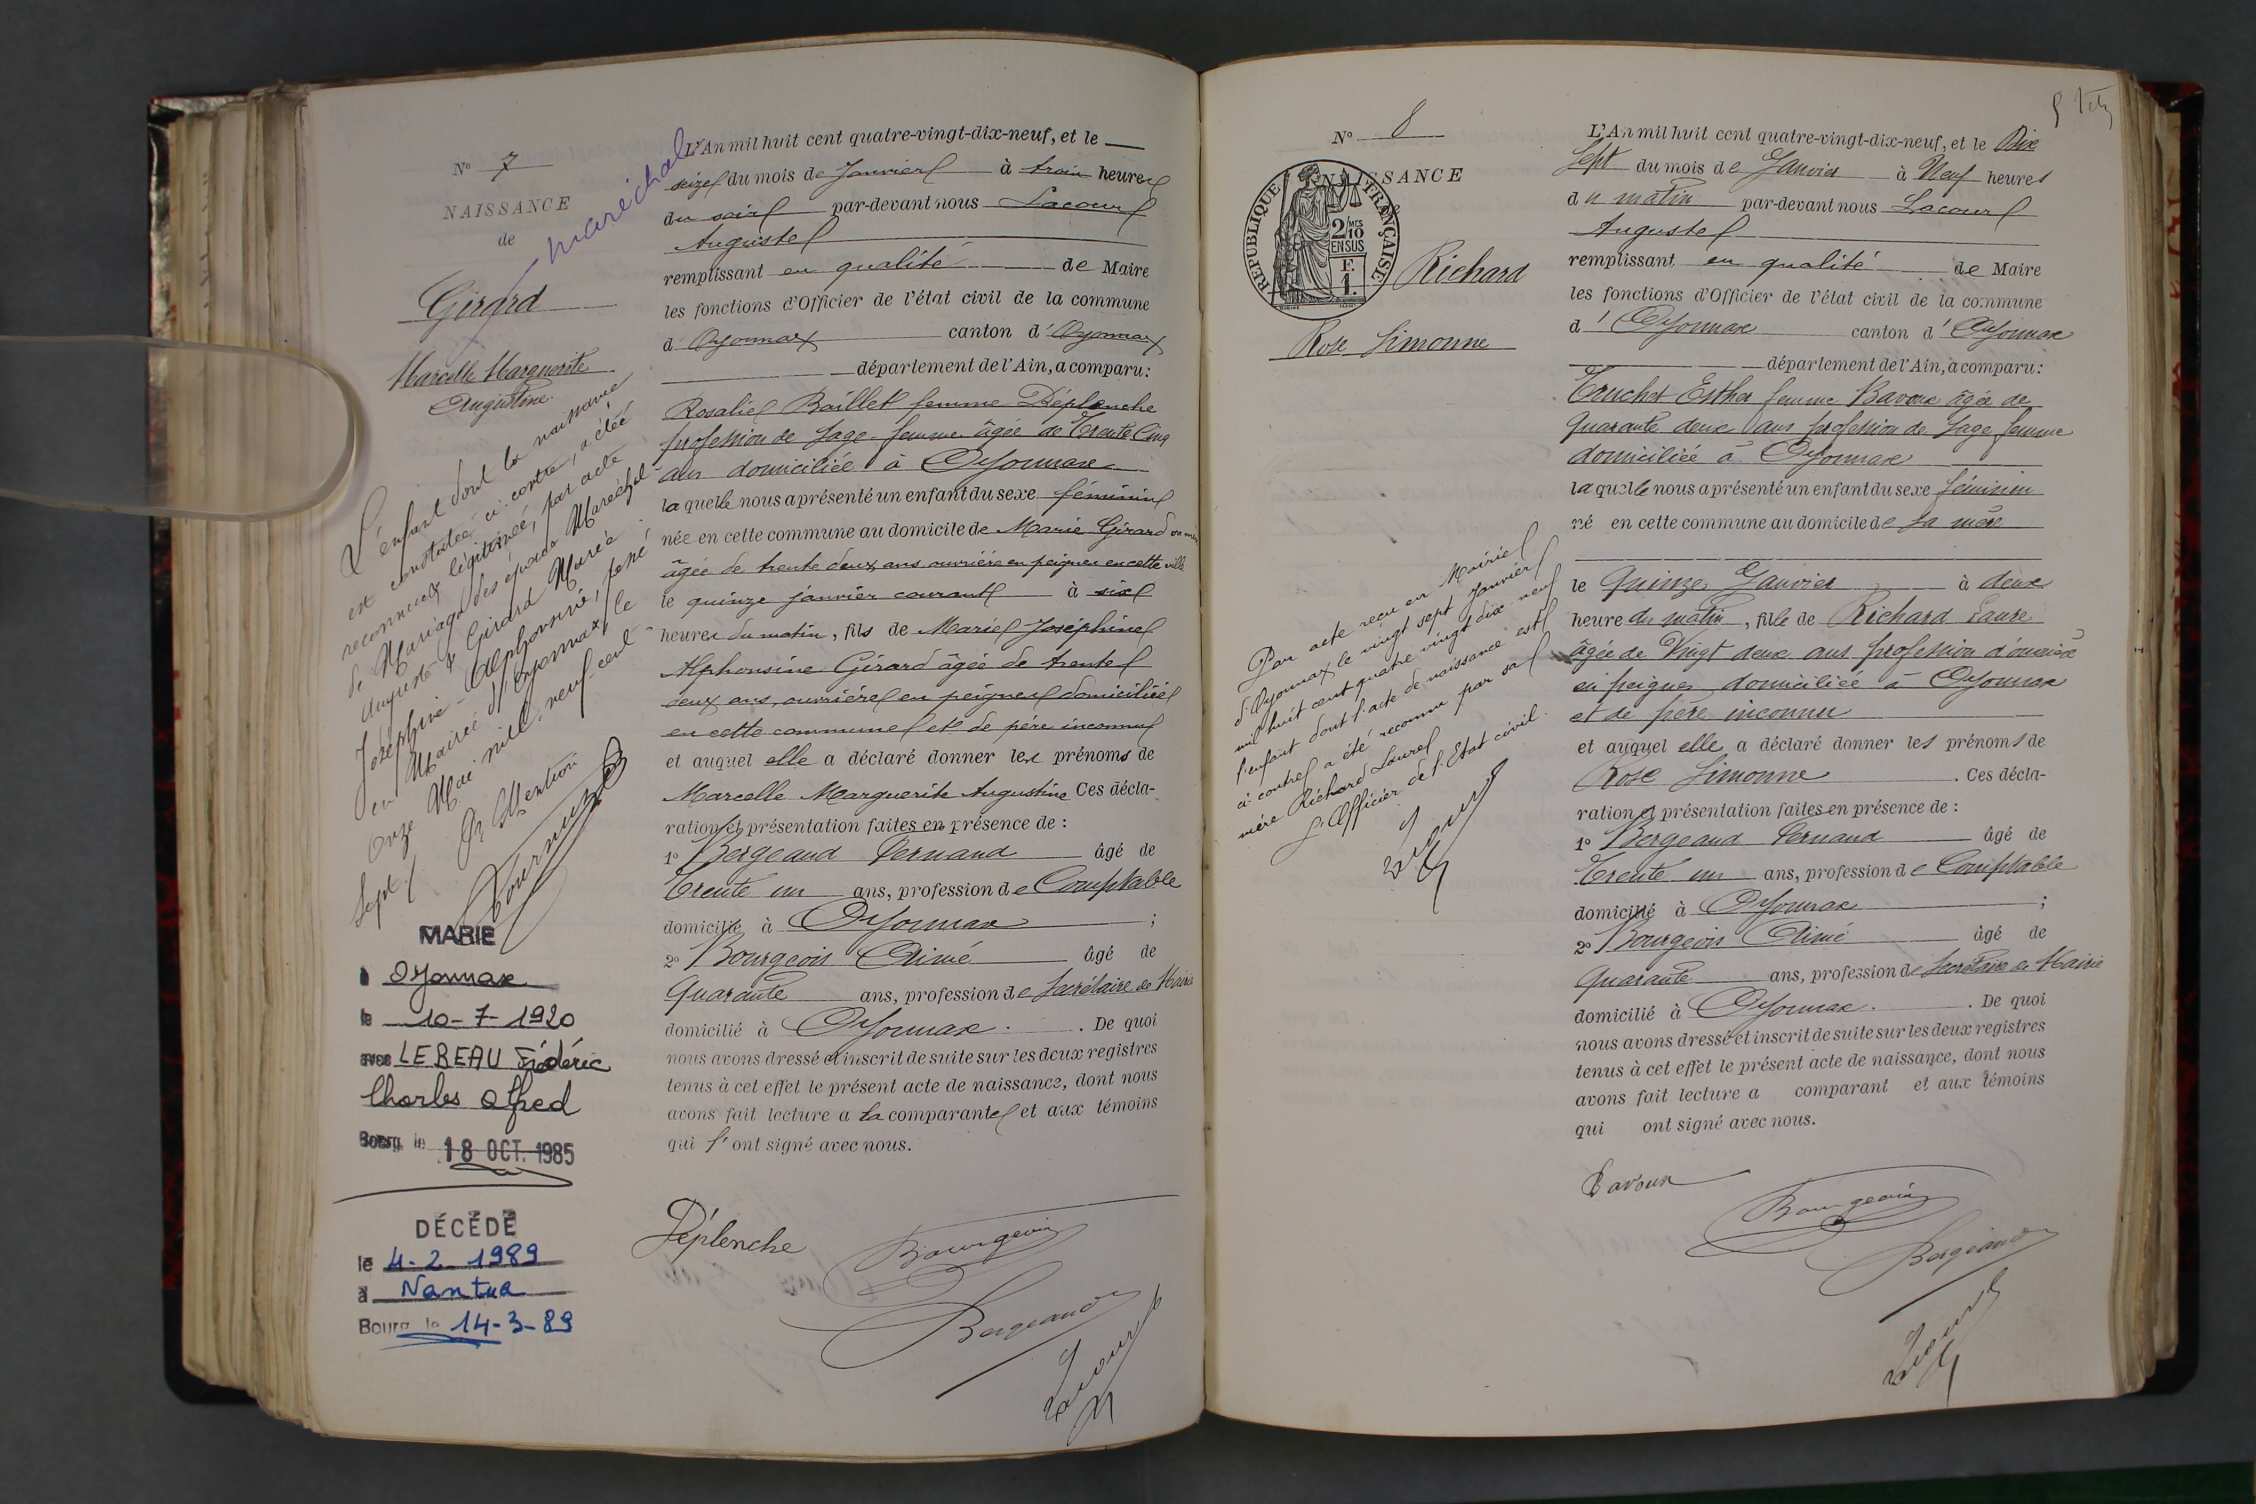 N° 7
NAISSANCE
de
Maréchal
Girard
Marcelle Marguerite
Augustine.
L'enfant dont la naissance
est constatée ci-contre, a été
reconnue & légitimée, par acte
de Mariage des époux Maréchal
Auguste & Girard Marie
Joséphine Alphonsine, passé
en Mairie d'Oyonnax, le
Onze Mai mil neuf cent
Sept./.
Pr Mention
MARIE
à Oyonnax
le 10-7-1920
avec LEBEAU Frédéric
Charles Alfred
Bourg, le 18 OCT. 1985
DÉCÉDÉ
le 4-2-1989
à Nantua
Bourg, le 14-3-89
L'An mil huit cent quatre-vingt-dix-neuf, et le
seize du mois de Janvier à trois heures
du soir par-devant nous Lacour
Auguste
remplissant en qualité de Maire
les fonctions d'Officier de l'état civil de la commune
d'Oyonnax canton d'Oyonnax
département de l'Ain, a comparu :
Rosalie Baillet femme Déplenche
profession de Sage-femme âgée de Trente Cinq
ans domiciliée à Oyonnax
laquelle nous a présenté un enfant du sexe féminin
née en cette commune au domicile de Marie Girard sa mère
âgée de trente deux ans ouvrière en peignes en cette ville
le quinze janvier courant à six
heures du matin, fils de Marie Joséphine
Alphonsine Girard âgée de trente
deux ans, ouvrière en peignes domiciliée
en cette commune et de père inconnu
et auquel elle a déclaré donner les prénoms de
Marcelle Marguerite Augustine Ces décla-
ration et présentation faites en présence de :
1° Bergeaud Fernand âgé de
Trente un ans, profession de Comptable
domicilié à Oyonnax ;
2° Bourgeois Aimé âgé de
Quarante ans, profession de Secrétaire de Mairie
domicilié à Oyonnax. De quoi
nous avons dressé et inscrit de suite sur les deux registres
tenus à cet effet le présent acte de naissance, dont nous
avons fait lecture a la comparante et aux témoins
qui l'ont signé avec nous.
Déplenche
Bourgeois
Bergeaud
Lacour
N° 8
NAISSANCE
RÉPUBLIQUE FRANÇAISE
2/10
MES
EN SUS
F.
1.
Richard
Rose Simonne
Par acte reçu en Mairie
d'Oyonnax le vingt sept Janvier
mil huit cent quatre vingt dix neuf
l'enfant dont l'acte de naissance est
ci-contre a été reconnu par sa
mère Richard Laure
L'Officier de l'Etat civil.
Lacour
L'An mil huit cent quatre-vingt-dix-neuf, et le Dix
Sept du mois de Janvier à Neuf heures
du matin par-devant nous Lacour
Auguste
remplissant en qualité de Maire
les fonctions d'Officier de l'état civil de la commune
d'Oyonnax canton d'Oyonnax
département de l'Ain, a comparu :
Truchet Esther femme Bavoux âgée de
Quarante deux ans profession de Sage femme
domiciliée à Oyonnax
laquelle nous a présenté un enfant du sexe féminin
né en cette commune au domicile de sa mère
le Quinze Janvier à deux
heure du matin, fille de Richard Laure
âgée de Vingt deux ans profession d'ouvrière
en peignes domiciliée à Oyonnax
et de père inconnu
et auquel elle a déclaré donner les prénoms de
Rose Simonne. Ces décla-
ration et présentation faites en présence de :
1° Bergeaud Fernand âgé de
Trente un ans, profession de Comptable
domicilié à Oyonnax ;
2° Bourgeois Aimé âgé de
Quarante ans, profession de Secrétaire de Mairie
domicilié à Oyonnax. De quoi
nous avons dressé et inscrit de suite sur les deux registres
tenus à cet effet le présent acte de naissance, dont nous
avons fait lecture a comparant et aux témoins
qui ont signé avec nous.
Bavoux
Bourgeois
Bergeaud
Lacour